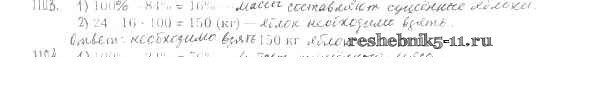 1103. 1) 100% - 84% = 16% - массы составляют сушёные яблоки.
2) 24 : 16 · 100 = 150 (кг) - яблок необходимо взять.
Ответ: необходимо взять 150 кг яблок
reshebnik5-11.ru